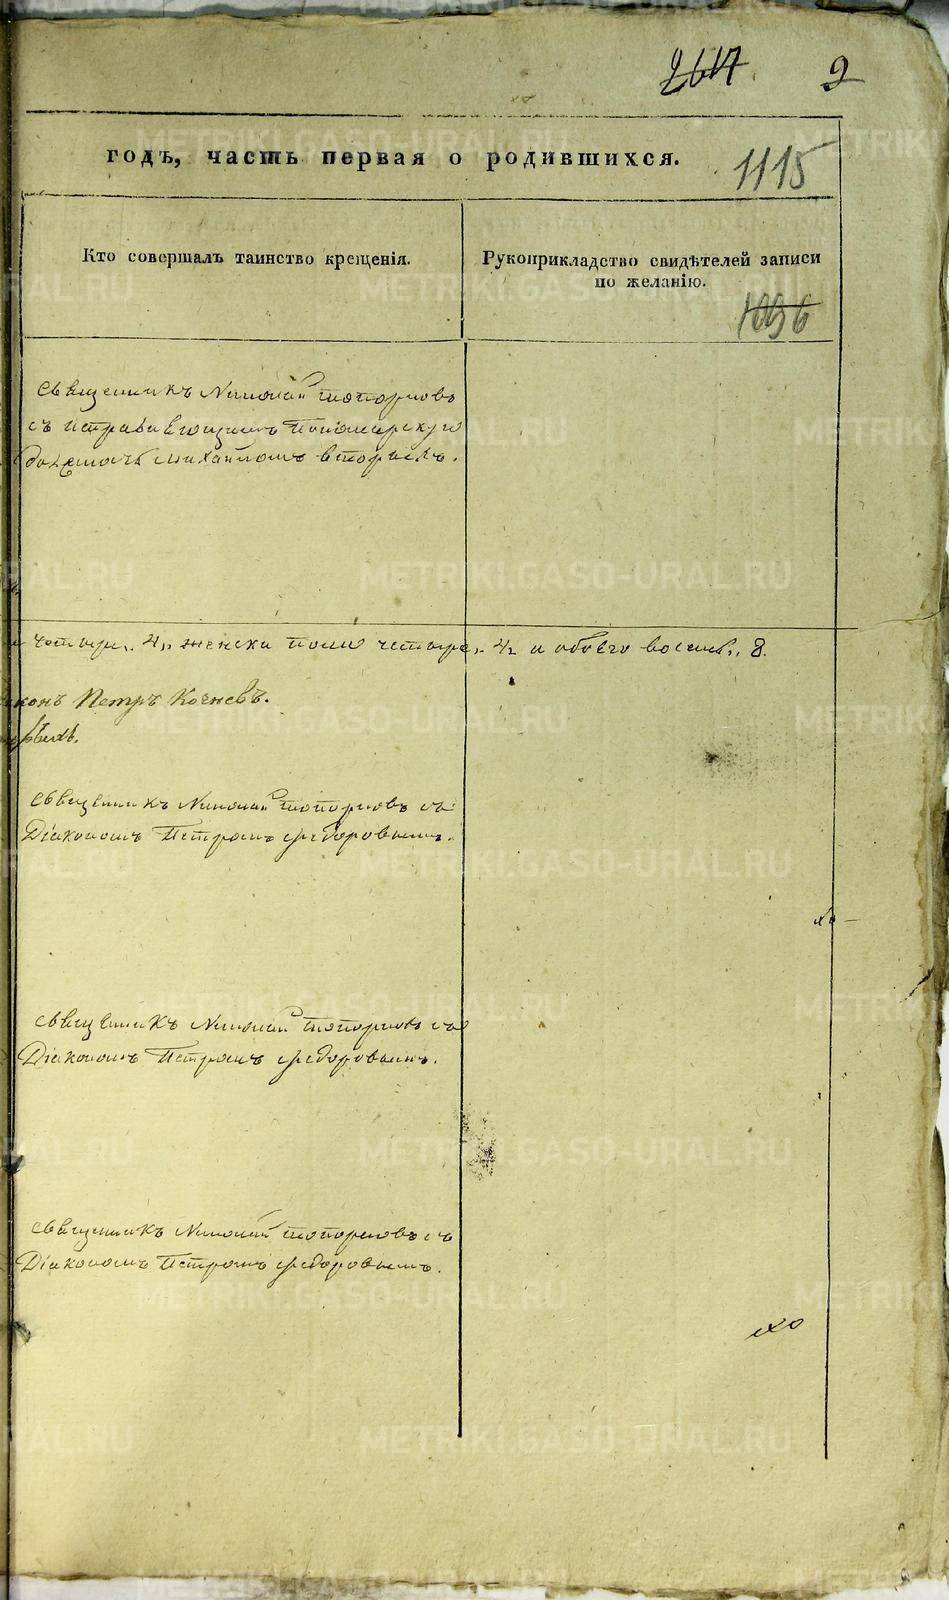 2617 2
годъ, часть первая о родившихся.
1115
Кто совершалъ таинство крещенія.
Рукоприкладство свидѣтелей записи
по желанію.
1096
Священникъ Николай Топорковъ
съ исправляющимъ Пономарскую
должность Михайломъ
четыре, 4, женска пола четыре, 4, и обоего восемь, 8.
Петръ Кочневъ.
Священникъ Николай Топорковъ съ
Діакономъ Петромъ Федоровымъ.
Священникъ Николай Топорковъ съ
Діакономъ Петромъ Федоровымъ.
Священникъ Николай Топорковъ съ
Діакономъ Петромъ Федоровымъ.
METRIKI.GASO-URAL.RU